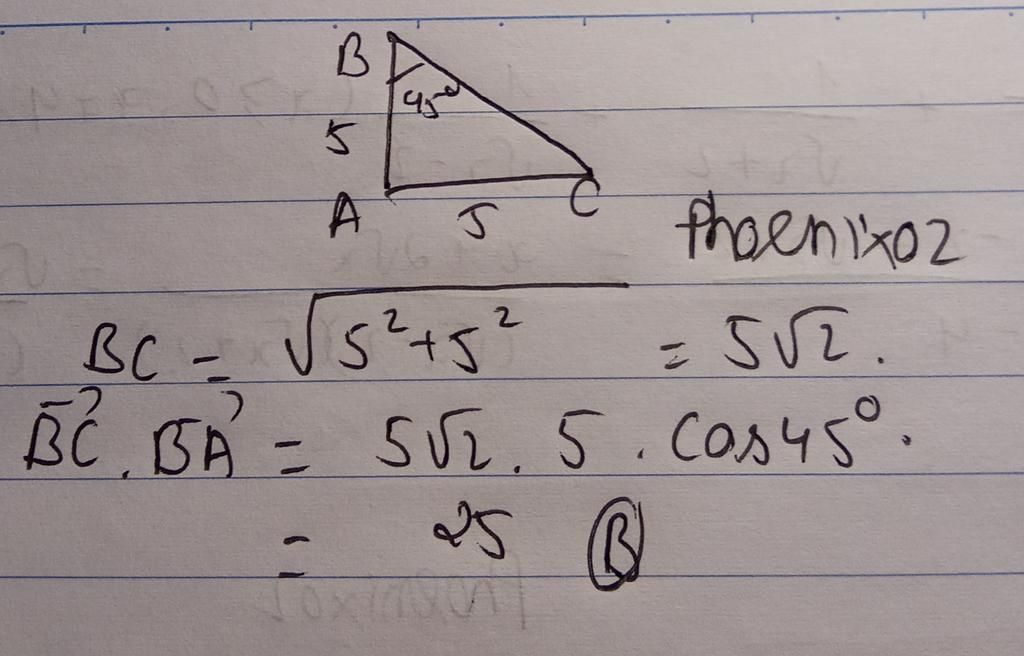 B
45°
5
A
5
C
Phoenix02
BC = √5²+5² = 5√2.
BC⃗ . BA⃗ = 5√2 . 5 . Cos45°.
= 25 Ⓑ